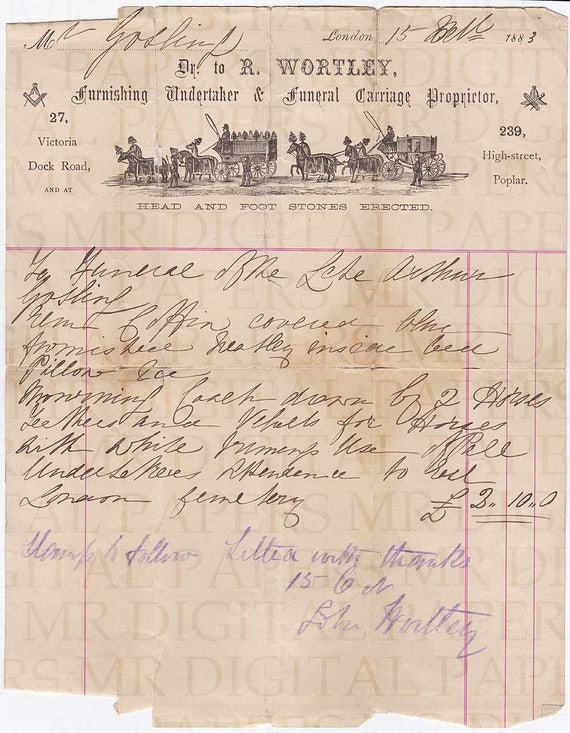 Mr Gosling London, 15 1883
Dr. to R. WORTLEY,
Furnishing Undertaker & Funeral Carriage Proprietor,
27,
Victoria
Dock Road,
AND AT
239,
High-street,
Poplar.
HEAD AND FOOT STONES ERECTED.
To Funeral of the Late Arthur
Gosling
Elm Coffin covered
furnished neatly inside bed
Pillow
Mourning Coach drawn by 2 Horses
Feathers and Velvets for Horses
with white Use of Pall
Undertakers Attendence to
London Cemetery £ 10 " 0
Stamp to follow Settled with thanks
15
John Wortley
MR DIGITAL PAPERS